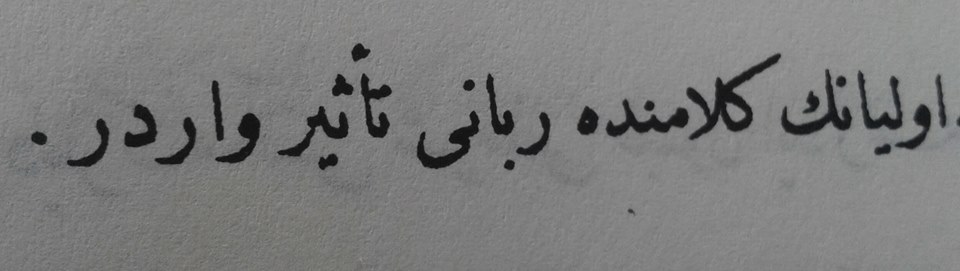 اوليانك كلامنده ربانى تأثير واردر .